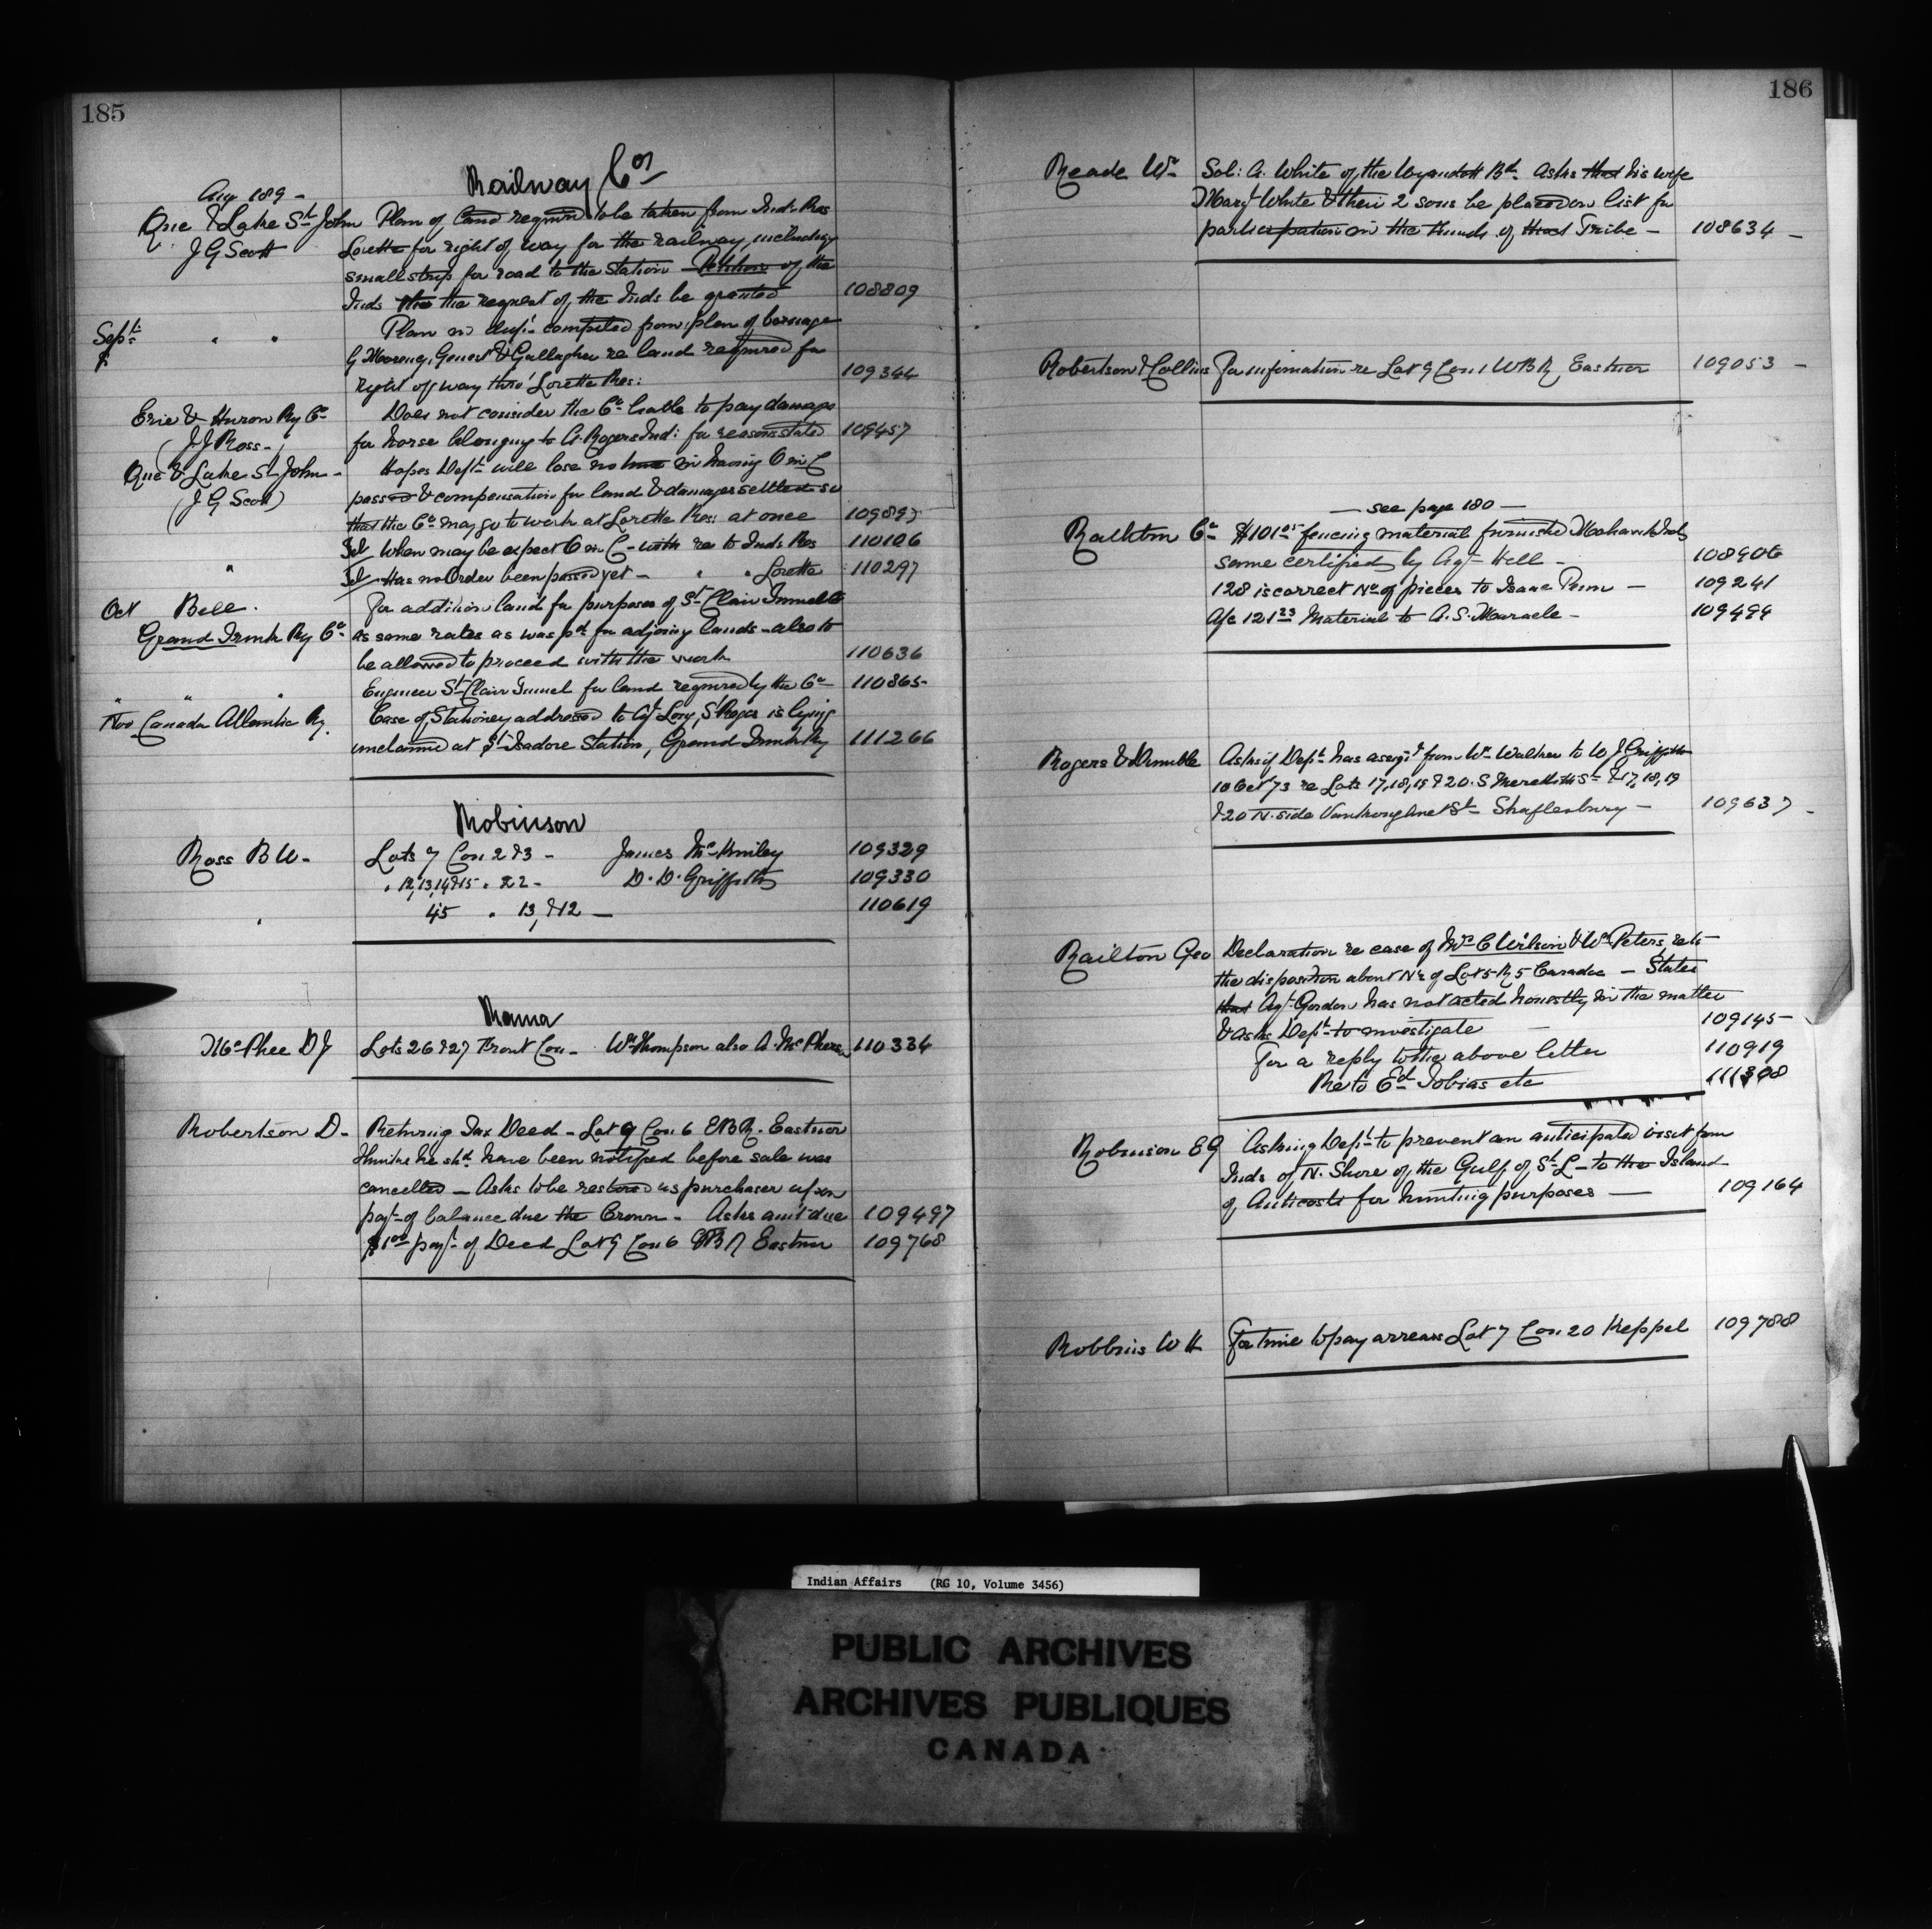 185
Railway Cos
Aug 189-
Que & Lake St John Plan of land required to be taken from Inds Res
J G Scott Lorette for right of way for the railway including
small strip for road to the station - Petition of the
Inds the request of the Inds be granted 108809
Sept " " Plan in dupt compiled from plan of
Genest & Gallagher re land required for
right of way thro' Lorette Res: 109344
Erie & Huron Ry Co Does not consider the Co liable to pay damages
(J J Ross- for horse belonging to A. Rogers Ind: for reasons stated 109457
Que & Lake St John - Hopes Dept will lose no time in having O in C
(J G Scott) passed & compensation for land & damages settled so
that the Co may go to work at Lorette Res: at once 109897
Tel When may be expect O in C - with re to Inds Res 110106
" Tel Has no Order been passed yet - " " Lorette 110297
Oct Bell. For addition land for purposes of St Clair Tunnel
Grand Trunk Ry Co as same rates as was pd for adjoining lands - also to
be allowed to proceed with the work 110636
" " " Engineer St Clair Tunnel for land required by the Co 110865
Nov Canada Atlantic Ry. Case of Stationery addressed to Agt Long, St Regis is lying
unclaimed at St Isadore Station, Grand Trunk Ry 111266
Robinson
Ross B W - Lots 7 Con 2 & 3 - James McKinley 109329
" 12,13,14&15 " & 2 - D. D. Griffith 109330
" 45 " 13, & 12 — 110619
Rama
McPhee D J Lots 26 & 27 Front Con - Wm Thompson also A. McPherson 110334
Robertson D - Returning Tax Deed - Lot 9 Con 6 EBR. Eastnor
Thinks he shd have been notified before sale was
cancelled - Asks to be restored as purchaser upon
payt of balance due the Crown - Asks amt due 109497
$1.00 payt of Deed Lot 9 Con 6 EBR Eastnor 109768
186
Reade Wm Sol: A. White of the Wyandott Bd Asks that his wife
Margt White & their 2 sons be placed on list for
participation in the funds of that Tribe - 108634 -
Robertson & Collins For information re Lot 9 Con 1 WBR Eastnor 109053 -
— see page 180 —
Co $101.05 fencing material furnished Mohawk Inds
same certified by Agt Hill - 108906
128 is correct No of pieces to Isaac - 109241
A/c 121.23 Material to A. S. Maracle - 109499
Rogers & Asks if Dept has assigt from Wm Walker to W J Griffith
10 Oct 73 re Lots 17,18,19 & 20 . S Meredith St & 17, 18, 19
& 20 N. side Vankoughnet St Shaftesbury - 109637 -
Railton Geo Declaration re case of Mrs C Wilson & Wm Peters, rets
the disposition about N½ of Lot 5 R 5 Caradoc - States
that Agt Gordon has not acted honestly in the matter
& asks Dept to investigate - 109145
For a reply to the above letter 110919
Re to Ed Tobias etc 111308
Robinson E G Asking Dept to prevent an anticipated visit from
Inds of N. Shore of the Gulf of St L - to the Island
of Anticosti for hunting purposes — 109164
Robbins W H For time to pay arrears Lot 7 Con 20 Keppel 109788
Indian Affairs (RG 10, Volume 3456)
PUBLIC ARCHIVES
ARCHIVES PUBLIQUES
CANADA